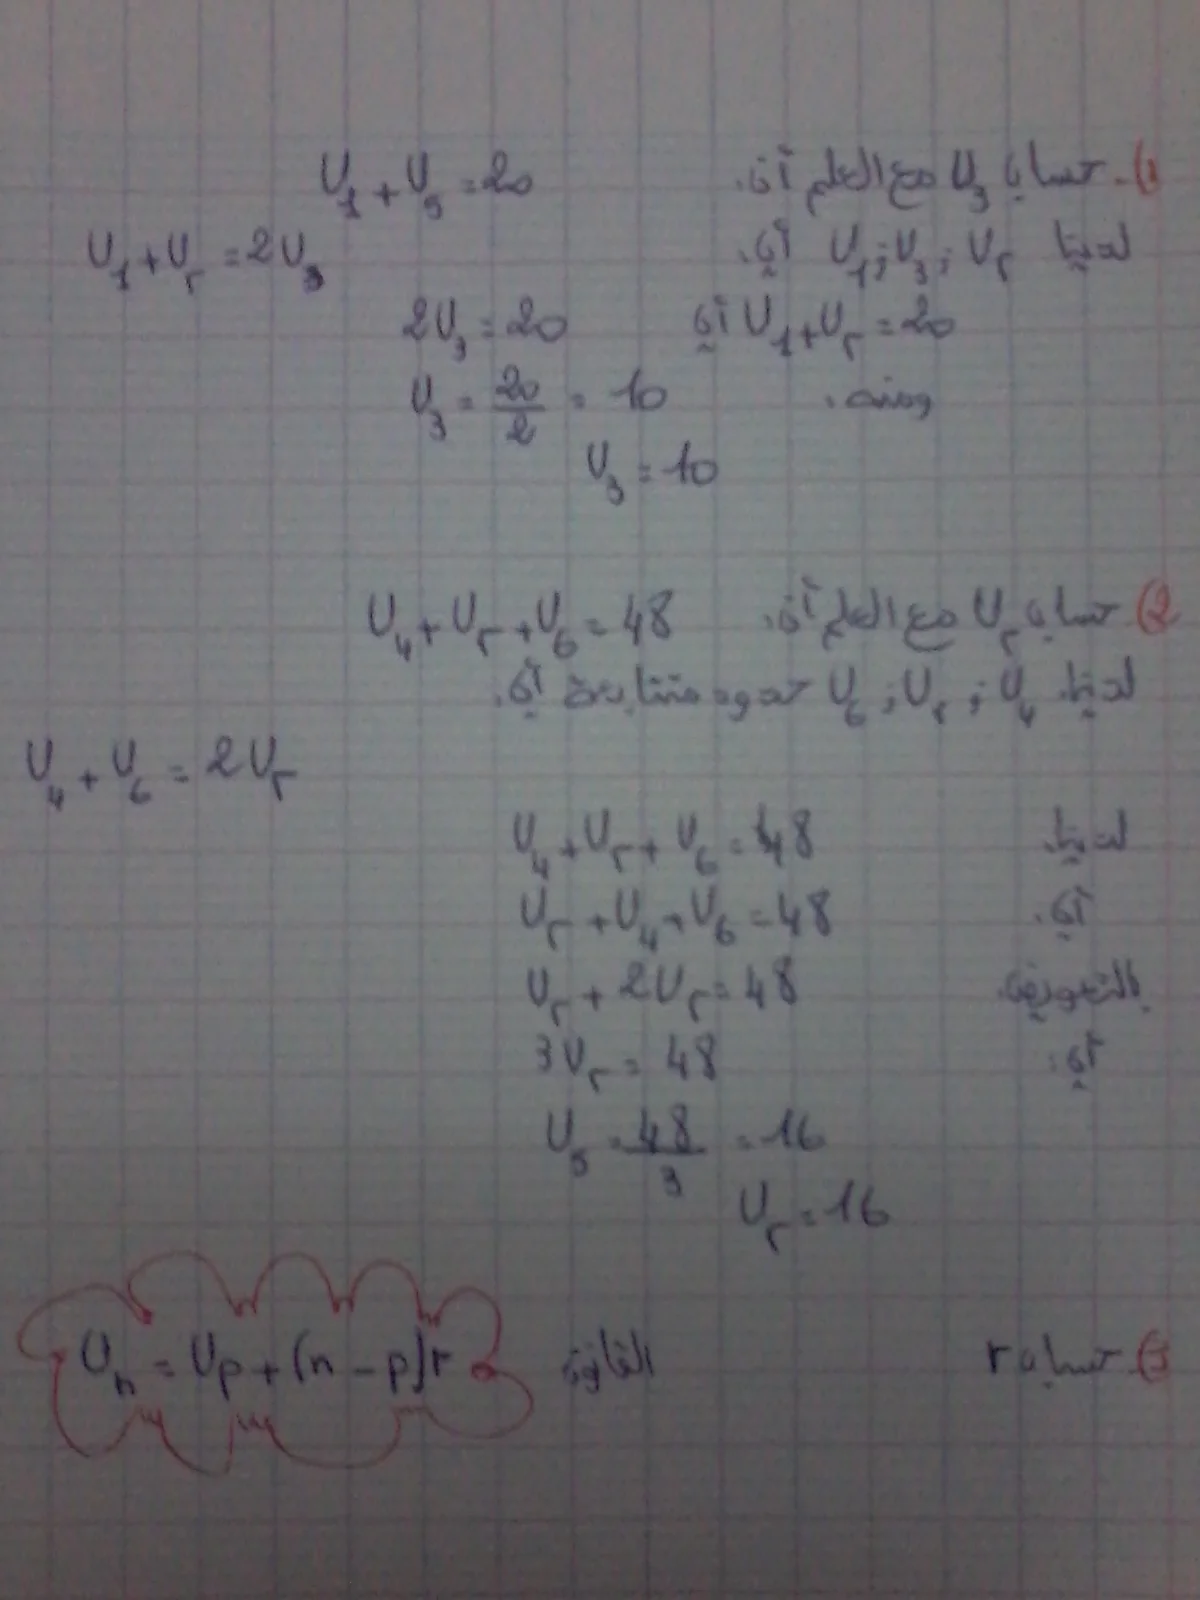 1) حساب U₃ مع العلم أن U₁ + U₅ = 20
لدينا U₁ ; U₃ ; U₅ أي U₁ + U₅ = 2U₃
U₁ + U₅ = 20 أي 2U₃ = 20
ومنه U₃ = 20/2 = 10
U₃ = 10
2) حساب U₅ مع العلم أن U₄ + U₅ + U₆ = 48
لدينا U₄ ; U₅ ; U₆ حدود متتابعة أي
U₄ + U₆ = 2U₅
لدينا U₄ + U₅ + U₆ = 48
أي U₅ + U₄ + U₆ = 48
بالتعويض U₅ + 2U₅ = 48
أي 3U₅ = 48
U₅ = 48/3 = 16
U₅ = 16
3) حساب r القانون Uₙ = Uₚ + (n - p)r